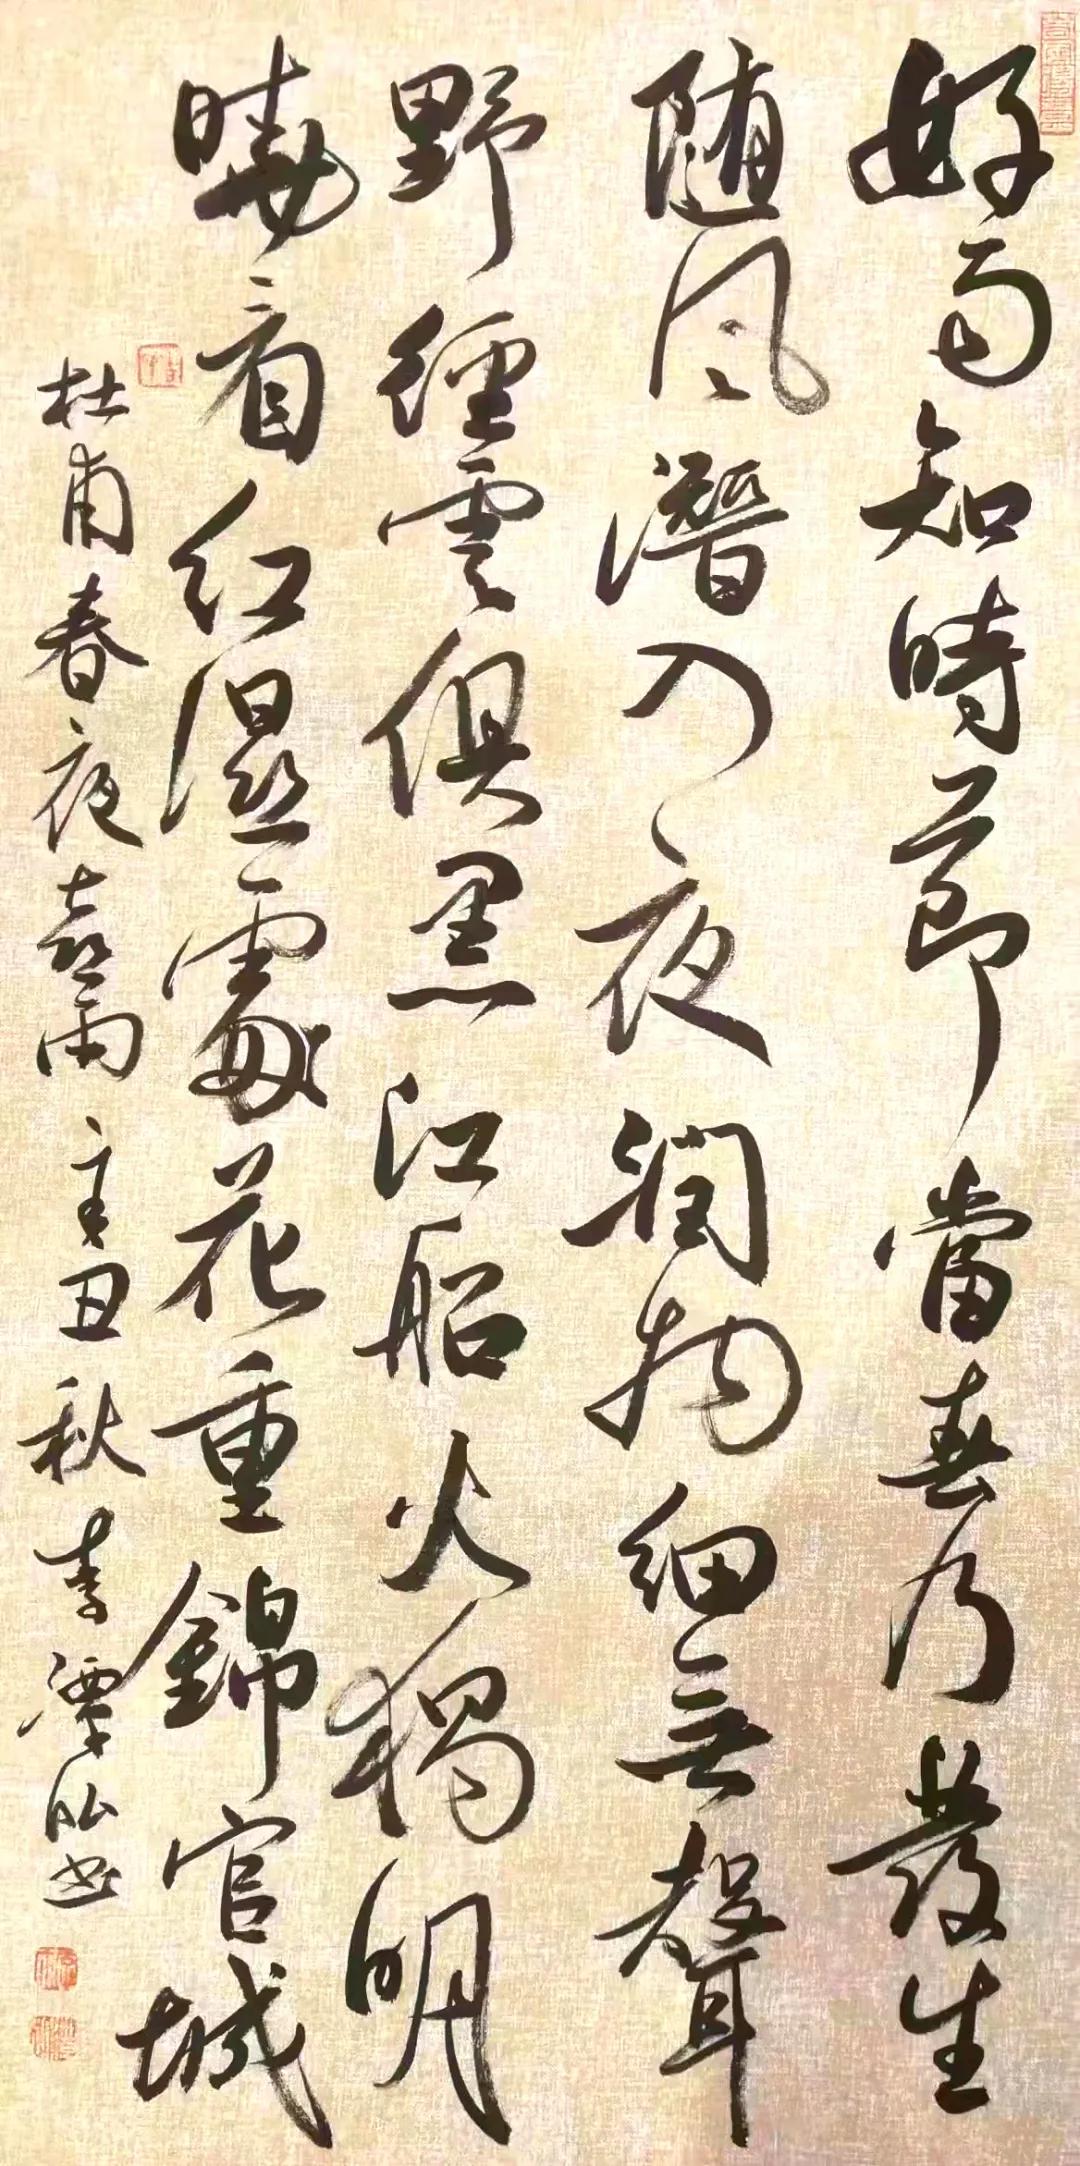 好雨知時節當春乃發生
随風潛入夜潤物細無聲
野徑雲俱黑江船火獨明
曉看紅濕處花重錦官城
杜甫春夜喜雨辛丑秋李潭昭书